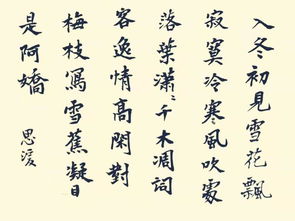 入冬初見雪花飄
寂寞冷寒風吹處
落葉瀟〻千木凋詞
客逸情高閑對
梅枝寫雪蕉凝目
是阿嬌
思